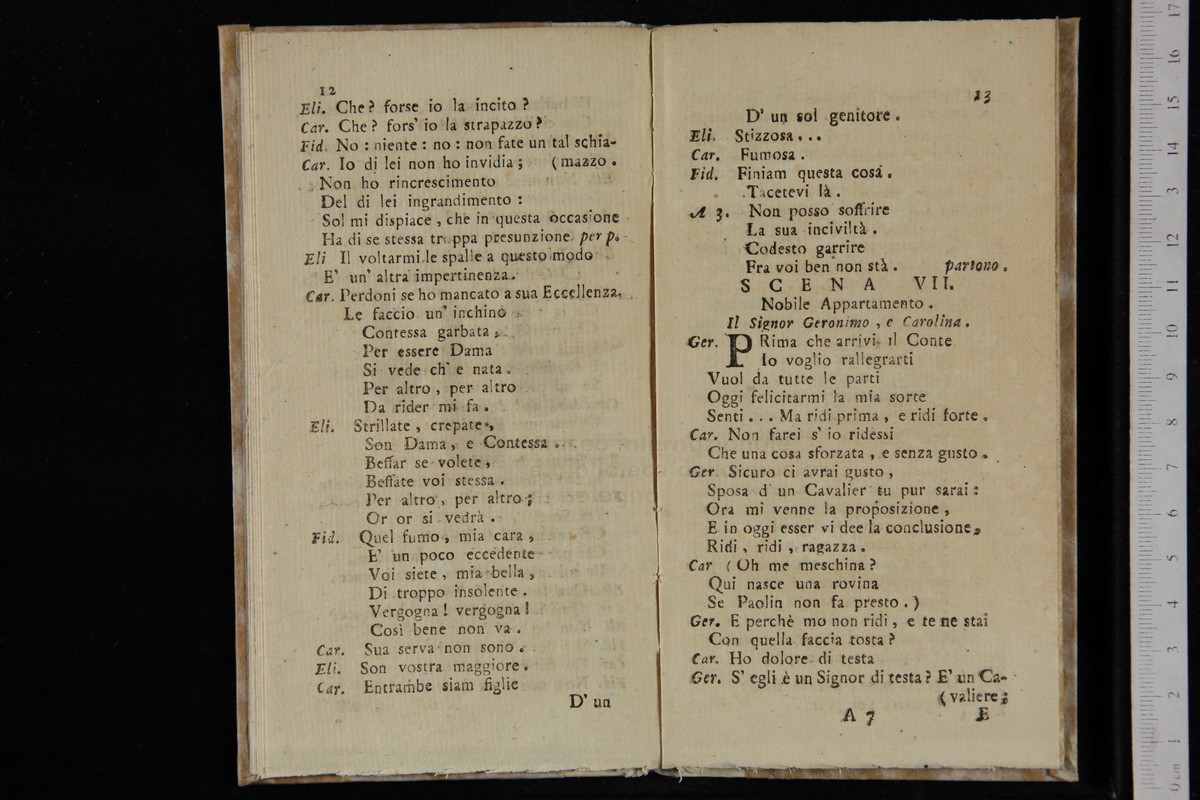 12
Eli. Che? forse io la incito?
Car. Che? fors' io la strapazzo?
Fid. No: niente: no: non fate un tal schia-
Car. Io di lei non ho invidia; (mazzo.
Non ho rincrescimento
Del di lei ingrandimento:
Sol mi dispiace, che in questa occasione
Ha di se stessa troppa presunzione. per p.
Eli Il voltarmi le spalle a questo modo
E' un' altra impertinenza.
Car. Perdoni se ho mancato a sua Eccellenza.
Le faccio un' inchino
Contessa garbata,
Per essere Dama
Si vede ch' e nata.
Per altro, per altro
Da rider mi fa.
Eli. Strillate, crepate,
Son Dama, e Contessa.
Beffar se volete,
Beffate voi stessa.
Per altro, per altro;
Or or si vedrà.
Fid. Quel fumo, mia cara,
E' un poco eccedente
Voi siete, mia bella,
Di troppo insolente.
Vergogna! vergogna!
Così bene non va.
Car. Sua serva non sono.
Eli. Son vostra maggiore.
Car. Entrambe siam figlie
D' un
13
D' un sol genitore.
Eli. Stizzosa...
Car. Fumosa.
Fid. Finiam questa cosa.
Tacetevi là.
A 3. Non posso soffrire
La sua inciviltà.
Codesto garrire
Fra voi ben non stà. partono.
SCENA VII.
Nobile Appartamento.
Il Signor Geronimo, e Carolina.
Ger. PRima che arrivi il Conte
Io voglio rallegrarti
Vuol da tutte le parti
Oggi felicitarmi la mia sorte
Senti... Ma ridi prima, e ridi forte.
Car. Non farei s' io ridessi
Che una cosa sforzata, e senza gusto.
Ger. Sicuro ci avrai gusto,
Sposa d' un Cavalier tu pur sarai:
Ora mi venne la proposizione,
E in oggi esser vi dee la conclusione,
Ridi, ridi, ragazza.
Car (Oh me meschina?
Qui nasce una rovina
Se Paolin non fa presto.)
Ger. E perchè mo non ridi, e te ne stai
Con quella faccia tosta?
Car. Ho dolore di testa
Ger. S' egli è un Signor di testa? E' un Ca-
(valiere;
A 7 E